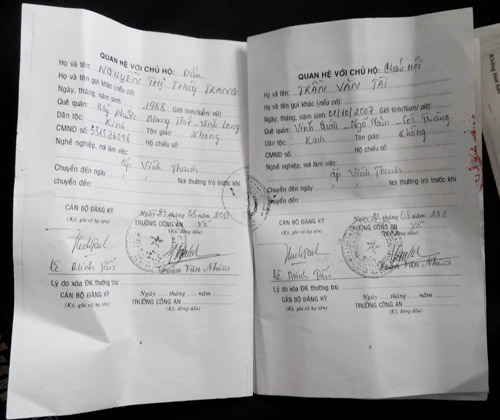 QUAN HỆ VỚI CHỦ HỘ: Dâu
Họ và tên: NGUYỄN THỊ THÙY TRANG
Họ và tên gọi khác (nếu có):
Ngày, tháng, năm sinh: 1988 Giới tính(Nam/ nữ):
Quê quán: Mỹ Phước Mang Thít Vĩnh Long
Dân tộc: Kinh Tôn giáo: Không
CMND số: 331536096 Hộ chiếu số:
Nghề nghiệp, nơi làm việc:
ấp Vĩnh Thanh
Chuyển đến ngày / / Nơi thường trú trước khi
chuyển đến:
Ngày 23 tháng 05 năm
CÁN BỘ ĐĂNG KÝ TRƯỞNG CÔNG AN Xã
(Ký, ghi rõ họ tên) (Ký, đóng dấu)
Lê Minh Tấn Đoàn Văn Nhiều
Lý do xóa ĐK thường trú:
Ngày ..... tháng ..... năm
CÁN BỘ ĐĂNG KÝ TRƯỞNG CÔNG AN
(Ký, ghi rõ họ tên) (Ký, đóng dấu)
QUAN HỆ VỚI CHỦ HỘ: Cháu nội
Họ và tên: TRẦN VĂN TÀI
Họ và tên gọi khác (nếu có):
Ngày, tháng, năm sinh: 02/10/2007 Giới tính(Nam/ nữ):
Quê quán: Vĩnh Quới Ngã Năm Sóc Trăng
Dân tộc: Kinh Tôn giáo: Không
CMND số: Hộ chiếu số:
Nghề nghiệp, nơi làm việc:
ấp Vĩnh Thanh
Chuyển đến ngày / / Nơi thường trú trước khi
chuyển đến:
Ngày 23 tháng 05 năm
CÁN BỘ ĐĂNG KÝ TRƯỞNG CÔNG AN Xã
(Ký, ghi rõ họ tên) (Ký, đóng dấu)
Lê Minh Tấn Đoàn Văn Nhiều
Lý do xóa ĐK thường trú:
Ngày ..... tháng ..... năm
CÁN BỘ ĐĂNG KÝ TRƯỞNG CÔNG AN
(Ký, ghi rõ họ tên) (Ký, đóng dấu)